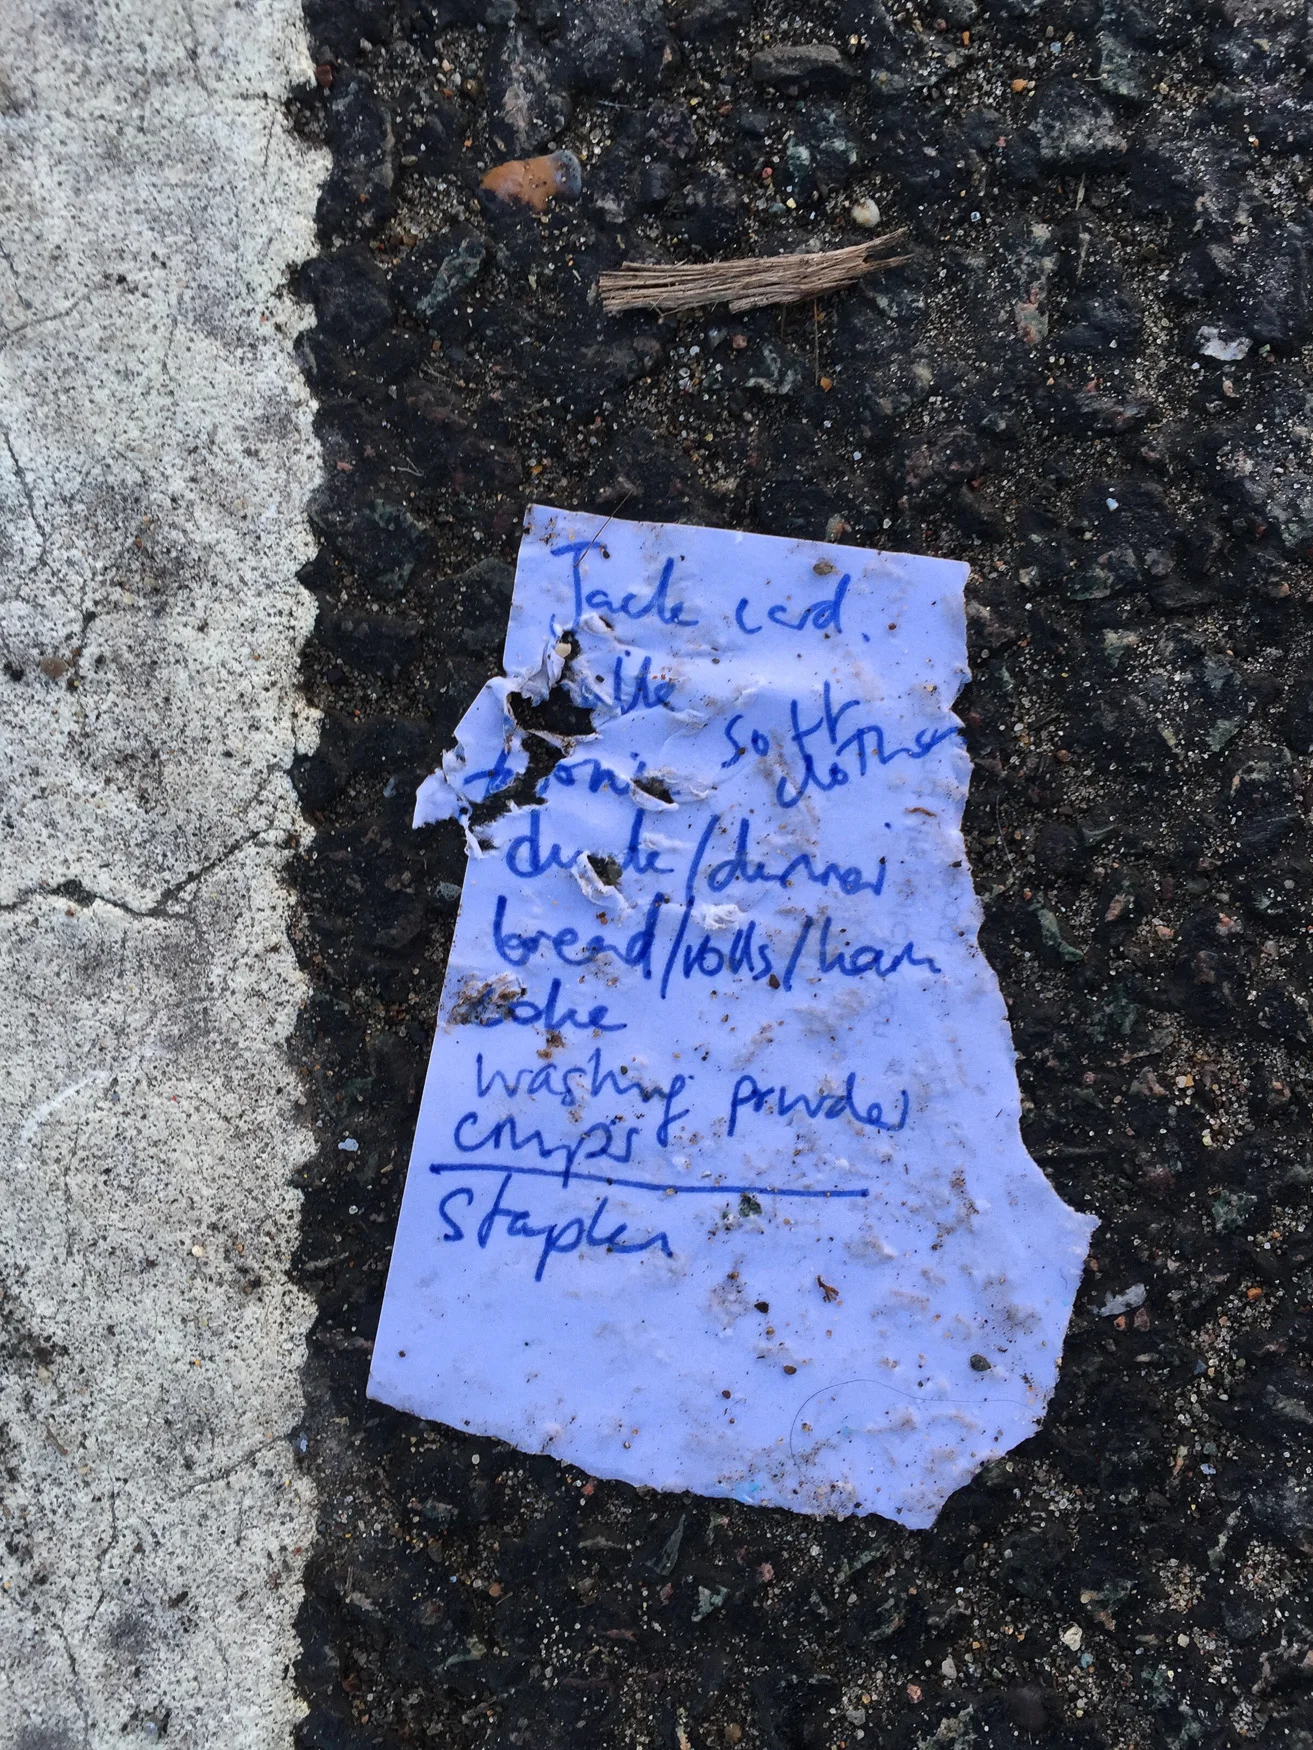 Jack card.
soft
clothes
/dinner
bread/rolls/ham
coke
washing powder
crisps
Stapler